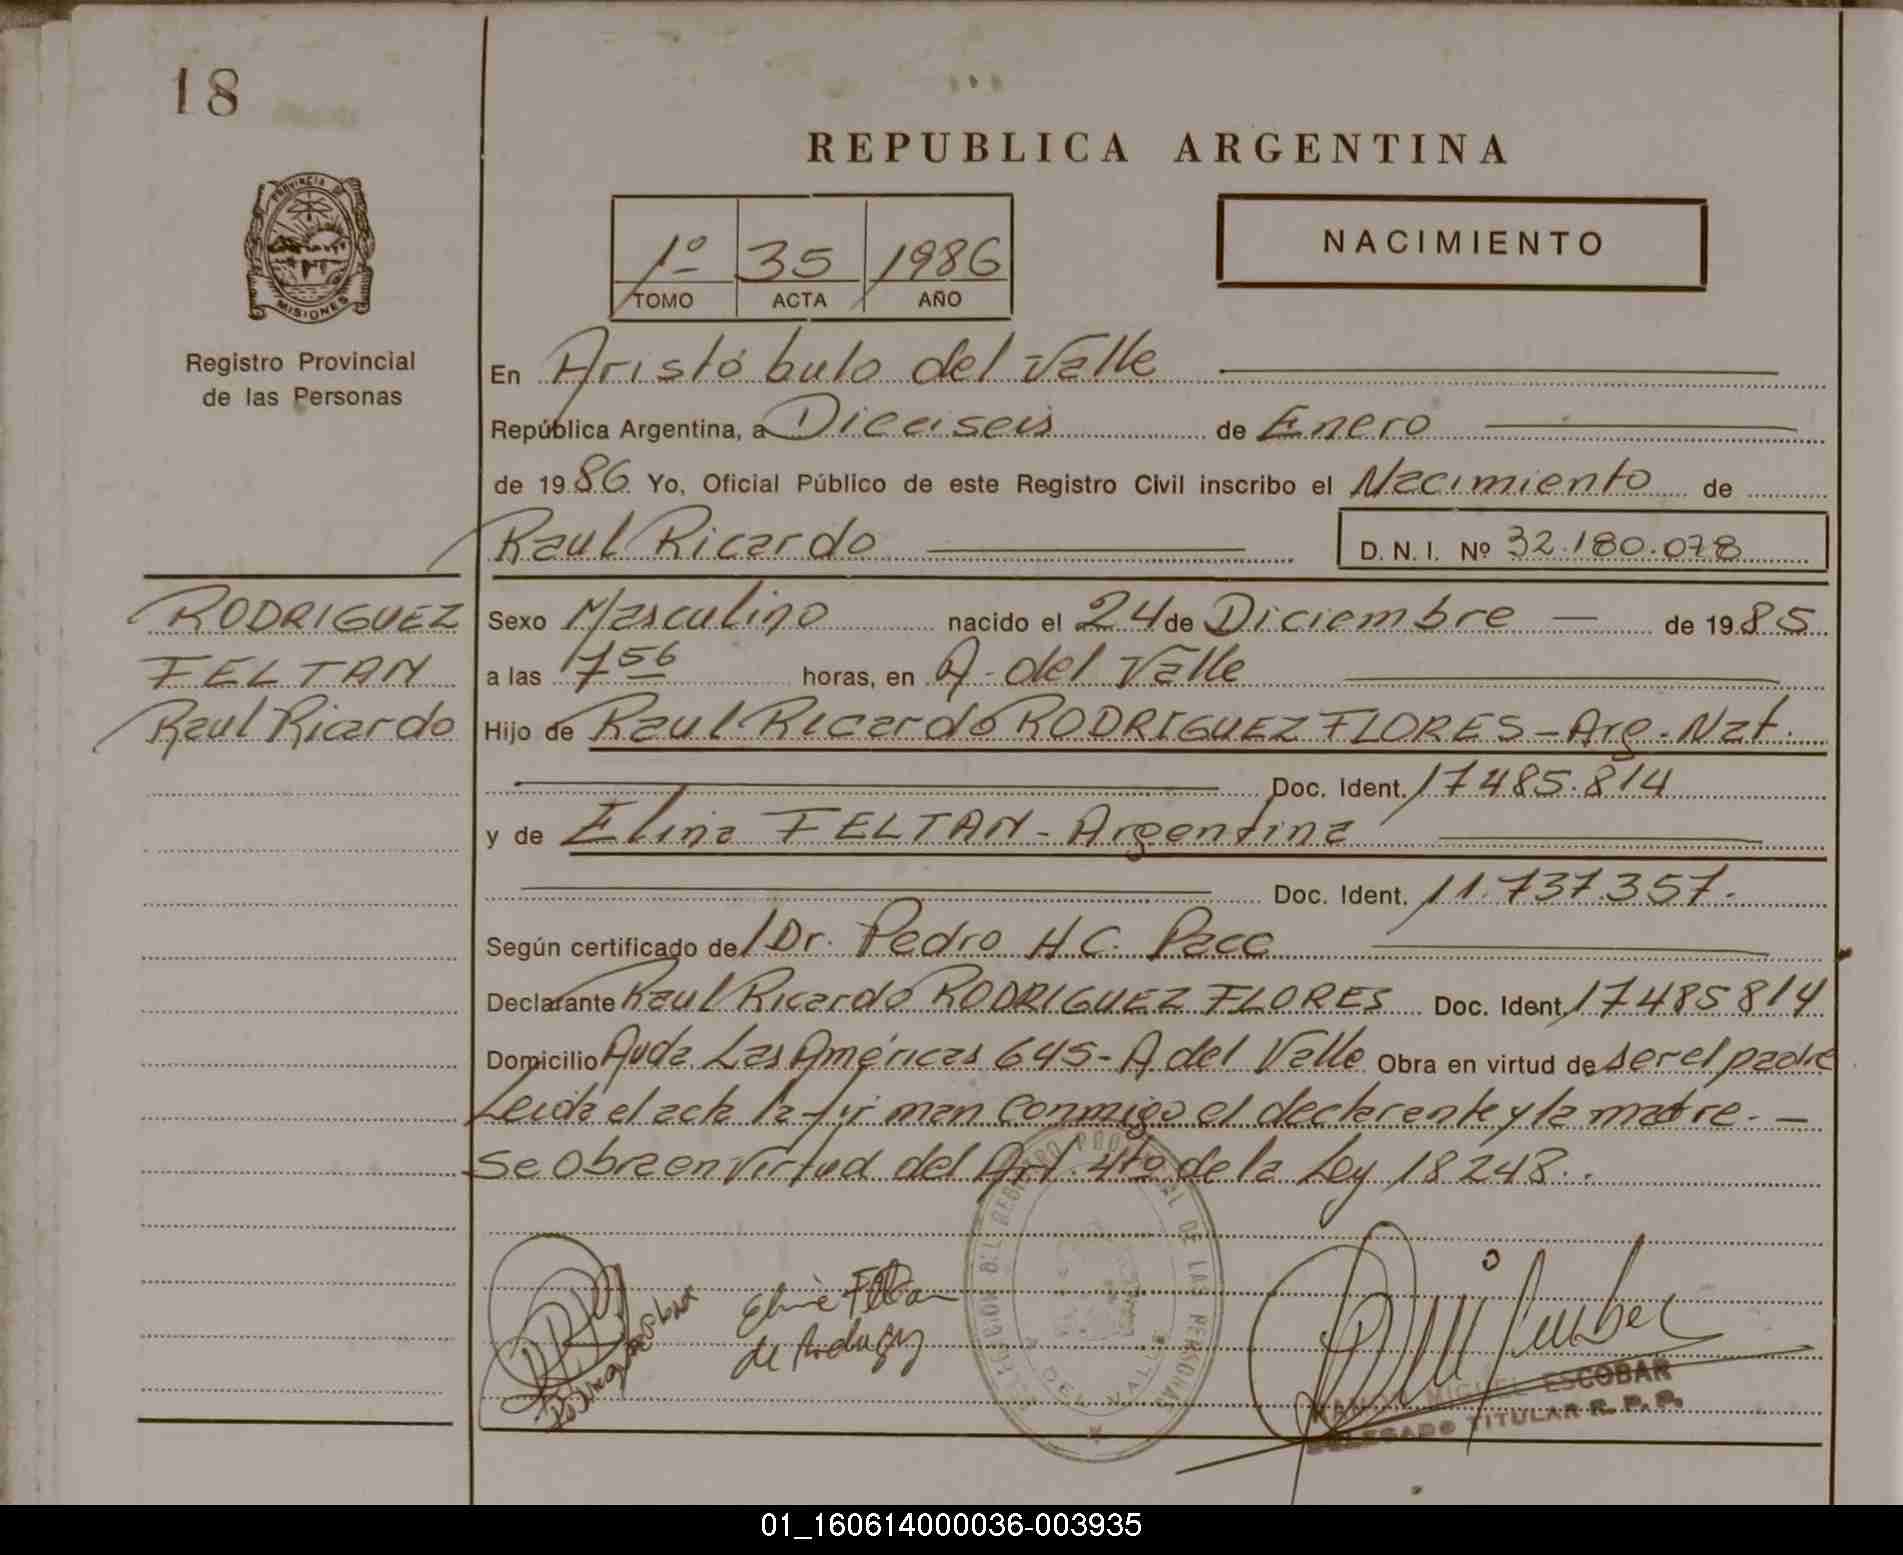 18
REPUBLICA ARGENTINA
PROVINCIA DE
MISIONES
Registro Provincial
de las Personas
1º 35 1986
TOMO ACTA AÑO
NACIMIENTO
En Aristóbulo del Valle
República Argentina, a Dieciseis de Enero
de 1986 Yo, Oficial Público de este Registro Civil inscribo el Nacimiento de
Raul Ricardo D. N. I. Nº 32.180.078
RODRIGUEZ
FELTAN
Raul Ricardo
Sexo Masculino nacido el 24 de Diciembre — de 1985
a las 7 56 horas, en A. del Valle
Hijo de Raul Ricardo RODRIGUEZ FLORES - Arg. Nat.
Doc. Ident. 17485.814
y de Elina FELTAN - Argentina
Doc. Ident. 11.737.357.
Según certificado de Dr. Pedro H.C. Pace
Declarante Raul Ricardo RODRIGUEZ FLORES Doc. Ident. 17485814
Domicilio Avda. Las Américas 645 - A del Valle Obra en virtud de ser el padre
Leida el acta la firman conmigo el declarante y la madre. —
Se obra en virtud del Art. 4to de la Ley 18248..
REGISTRO PROVINCIAL DE LAS PERSONAS
DEL VALLE
Feltan
de
MIGUEL ESCOBAR
DELEGADO TITULAR R. P. P.
01_160614000036-003935